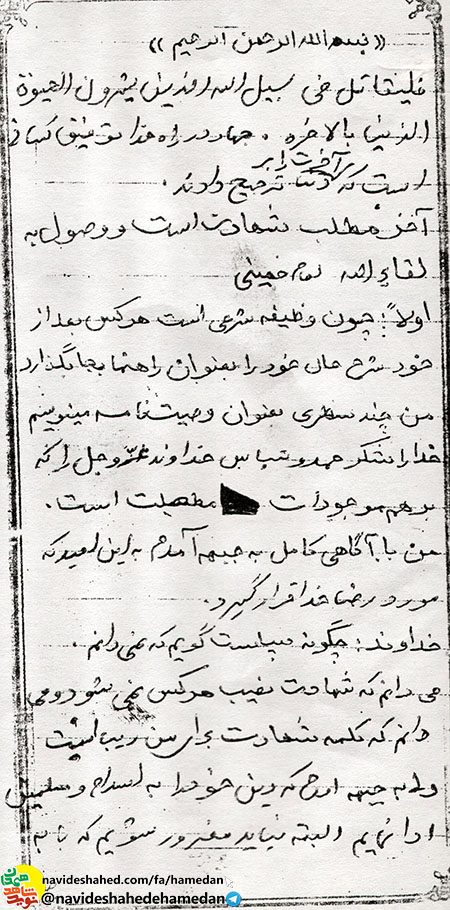 « بسم الله الرحمن الرحیم »
فلیقاتل فی سبیل الله الذین یشرون الحیوة
الدنیا بالاخره . جهاد در راه خدا توفیق کسانی
است که آخرت را بر دنیا ترجیح دادند .
آخر مطلب شهادت است و وصول به
لقاء الله امام خمینی
اولاً: چون وظیفه شرعی است هر کس بعد از
خود شرح حال خود را بعنوان راهنما بجا بگذارد
من چند سطری بعنوان وصیتنامه مینویسم
خدا را شکر حمد و سپاس خداوند عزّوجل را که
بر همه موجودات است .
من با آگاهی کامل به جبهه آمدم به این امید که
مورد رضا خدا قرار گیرد .
خداوند: چگونه سپاست گویم که نمی دانم .
می دانم که شهادت نصیب هر کس نمی شود و می
دانم که کلمه شهادت برای من است
ولی به جبهه آمدم که دین خود را به اسلام و
ادا نمایم البته نباید مغرور شویم که ما به
navideshahed.com/fa/hamedan
@navideshahedehamedan